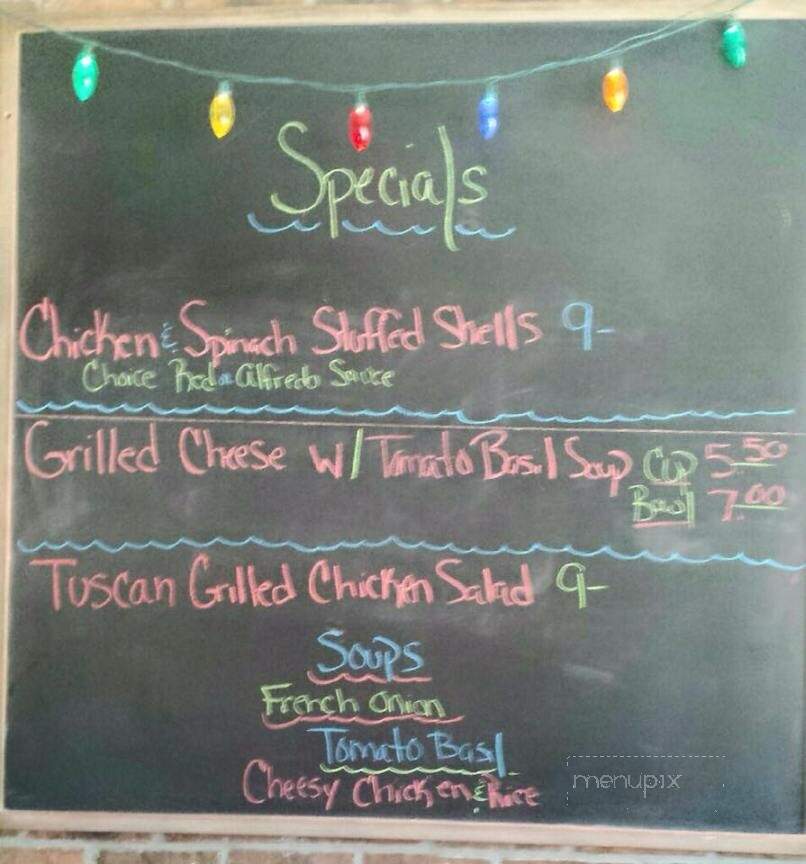 Specials
Chicken & Spinach Stuffed Shells 9-
Choice Red or Alfredo Sauce
Grilled Cheese w/ Tomato Basil Soup Cup 5.50
Bowl 7.00
Tuscan Grilled Chicken Salad 9-
Soups
French Onion
Tomato Basil
Cheesy Chicken & Rice
menupix